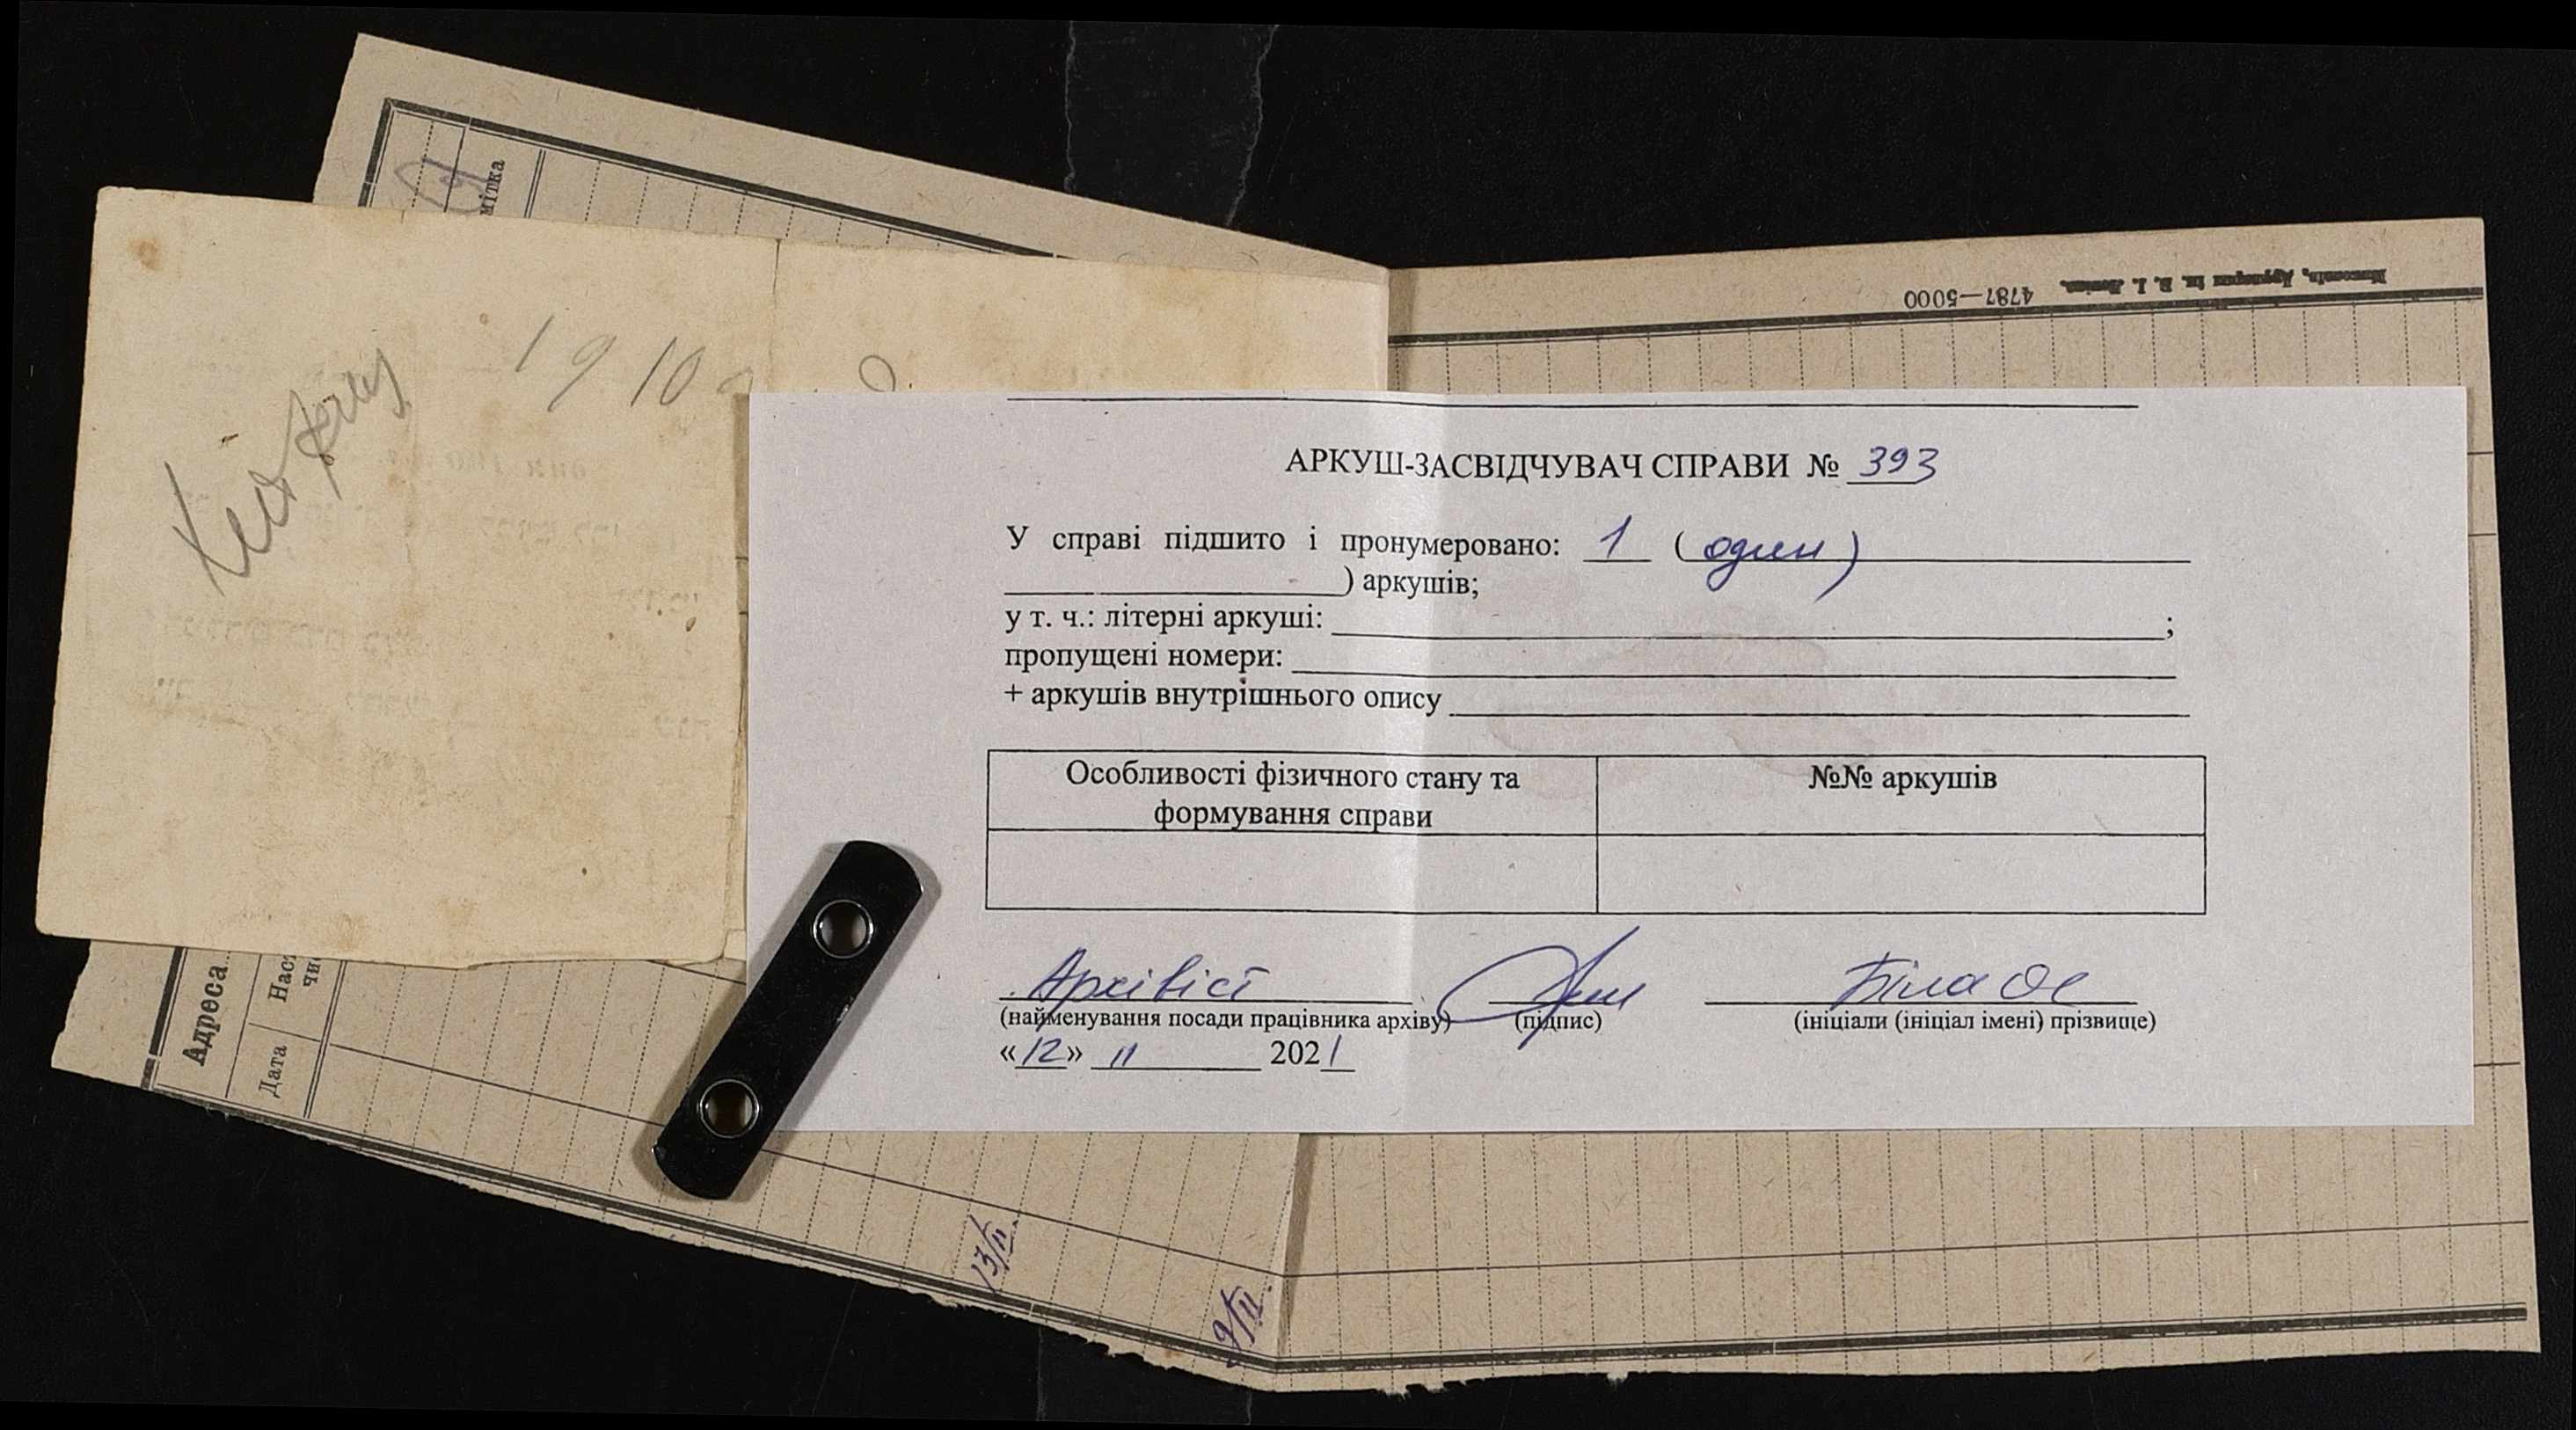 мітка
1910
4787—5000
АРКУШ-ЗАСВІДЧУВАЧ СПРАВИ № 393
У справі підшито і пронумеровано: 1 (один)
) аркушів;
у т. ч.: літерні аркуші: ;
пропущені номери:
+ аркушів внутрішнього опису
Особливості фізичного стану та
формування справи
№№ аркушів
Архівіст
Біла
(найменування посади працівника архіву)
(підпис)
(ініціали (ініціал імені) прізвище)
«12» 11 2021
Адреса
Дата
13/II.
9/II.